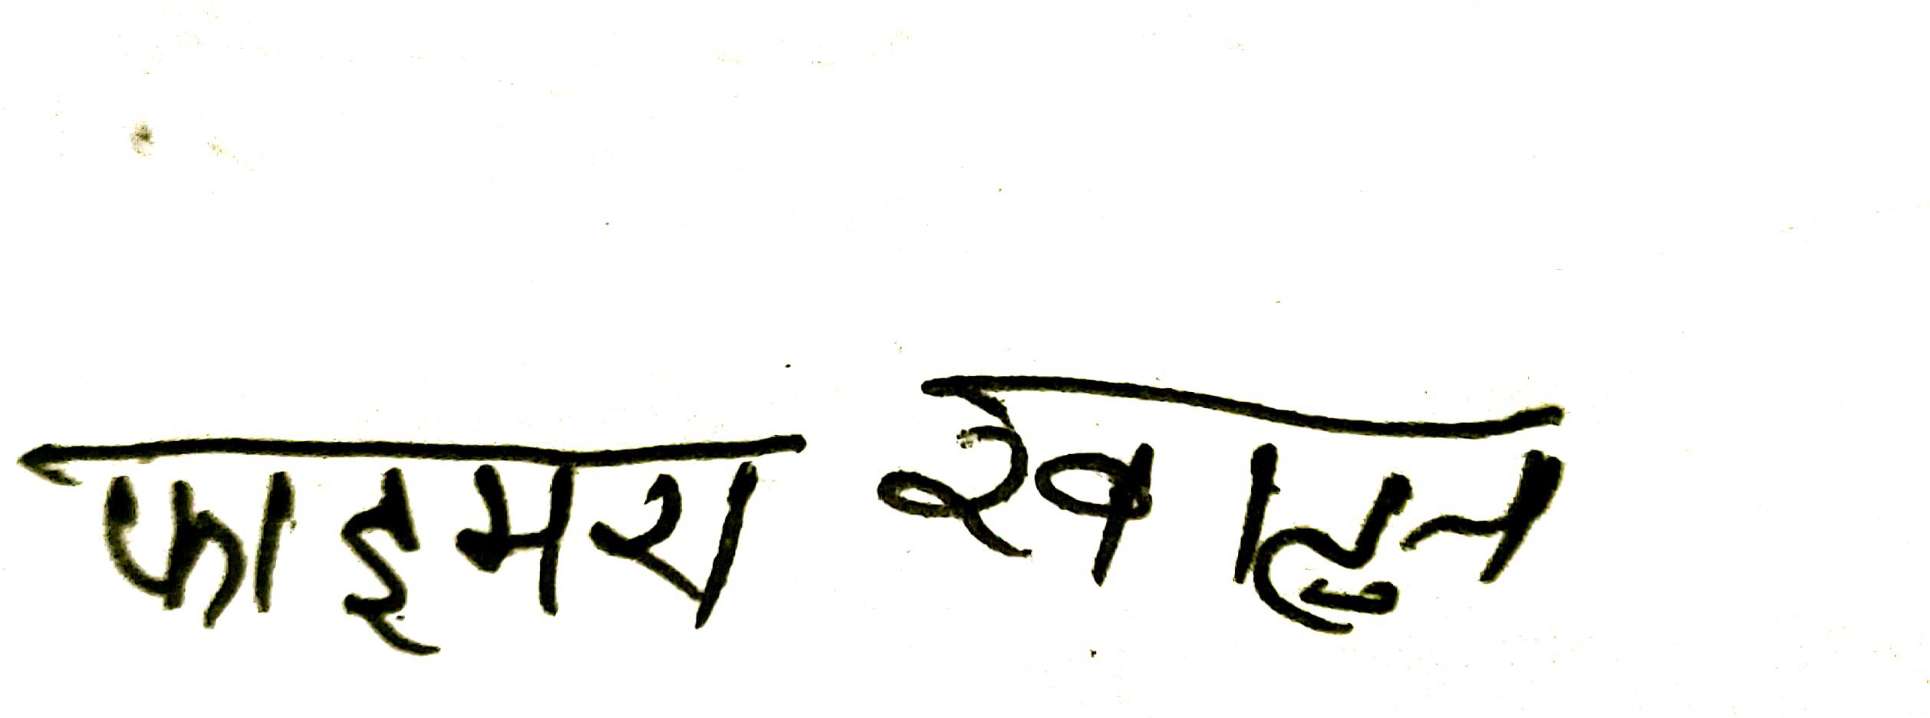 फाइमरा खातून